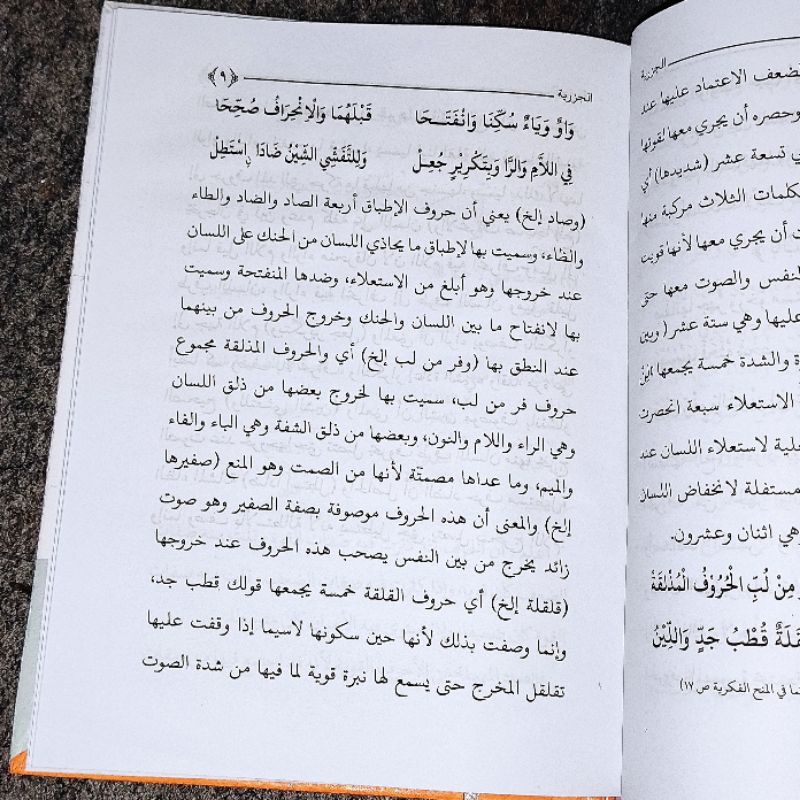 الجزرية
لضعف الاعتماد عليها عند
وحصره أن يجري معها لقوتها
تسعة عشر (شديدها) أي
كلمات الثلاث مركبة منها
أن يجري معها لأنها قويت
النفس والصوت معها حتى
عليها وهي ستة عشر (وبين
والشدة خمسة يجمعها
الاستعلاء سبعة انحصرت
علية لاستعلاء اللسان عند
مستفلة لانخفاض اللسان
وهي اثنان وعشرون.
مِنْ لُبِّ الْحُرُوْفُ الْمُذْلَقَةْ
قَلَةٌ قُطْبُ جَدٍّ وَاللِّيْنُ
ما في المنح الفكرية ص ١٧)
الجزرية (٩)
وَاوٌ وَيَاءٌ سُكِّنَا وَانْفَتَـحَا قَبْلَهُمَا وَالْاِنْحِرَافُ صُحِّحَا
فِي اللَّامِ وَالرَّا وَبِتَكْرِيْرٍ جُعِلْ وَلِلتَّفَشِّي الشِّيْنُ ضَادًا ۨاسْتَطِلْ
(وصاد إلخ) يعني أن حروف الإطباق أربعة الصاد والضاد والطاء
والظاء، وسميت بها لإطباق ما يحاذي اللسان من الحنك على اللسان
عند خروجها وهو أبلغ من الاستعلاء، وضدها المنفتحة وسميت
بها لانفتاح ما بين اللسان والحنك وخروج الحروف من بينهما
عند النطق بها (وفر من لب إلخ) أي والحروف المذلقة مجموع
حروف فر من لب، سميت بها لخروج بعضها من ذلق اللسان
وهي الراء واللام والنون، وبعضها من ذلق الشفة وهي الباء والفاء
والميم، وما عداها مصمتة لأنها من الصمت وهو المنع (صفيرها
إلخ) والمعنى أن هذه الحروف موصوفة بصفة الصفير وهو صوت
زائد يخرج من بين النفس يصحب هذه الحروف عند خروجها
(قلقلة إلخ) أي حروف القلقة خمسة يجمعها قولك قطب جد،
وإنما وصفت بذلك لأنها حين سكونها لاسيما إذا وقفت عليها
تقلقل المخرج حتى يسمع لها نبرة قوية لما فيها من شدة الصوت